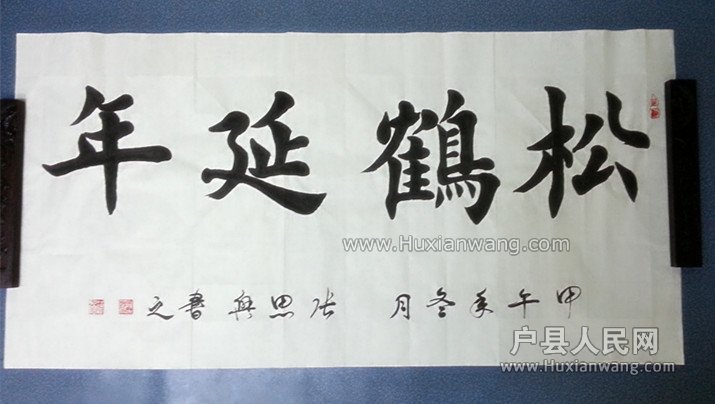 松鹤延年
甲午年冬月 张思无书之
www.Huxianwang.com
户县人民网
www.Huxianwang.com